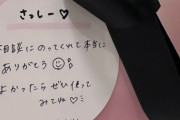 さっしー♡
相談にのってくれて本当に
ありがとう
よかったら ぜひ使って
みてね♡